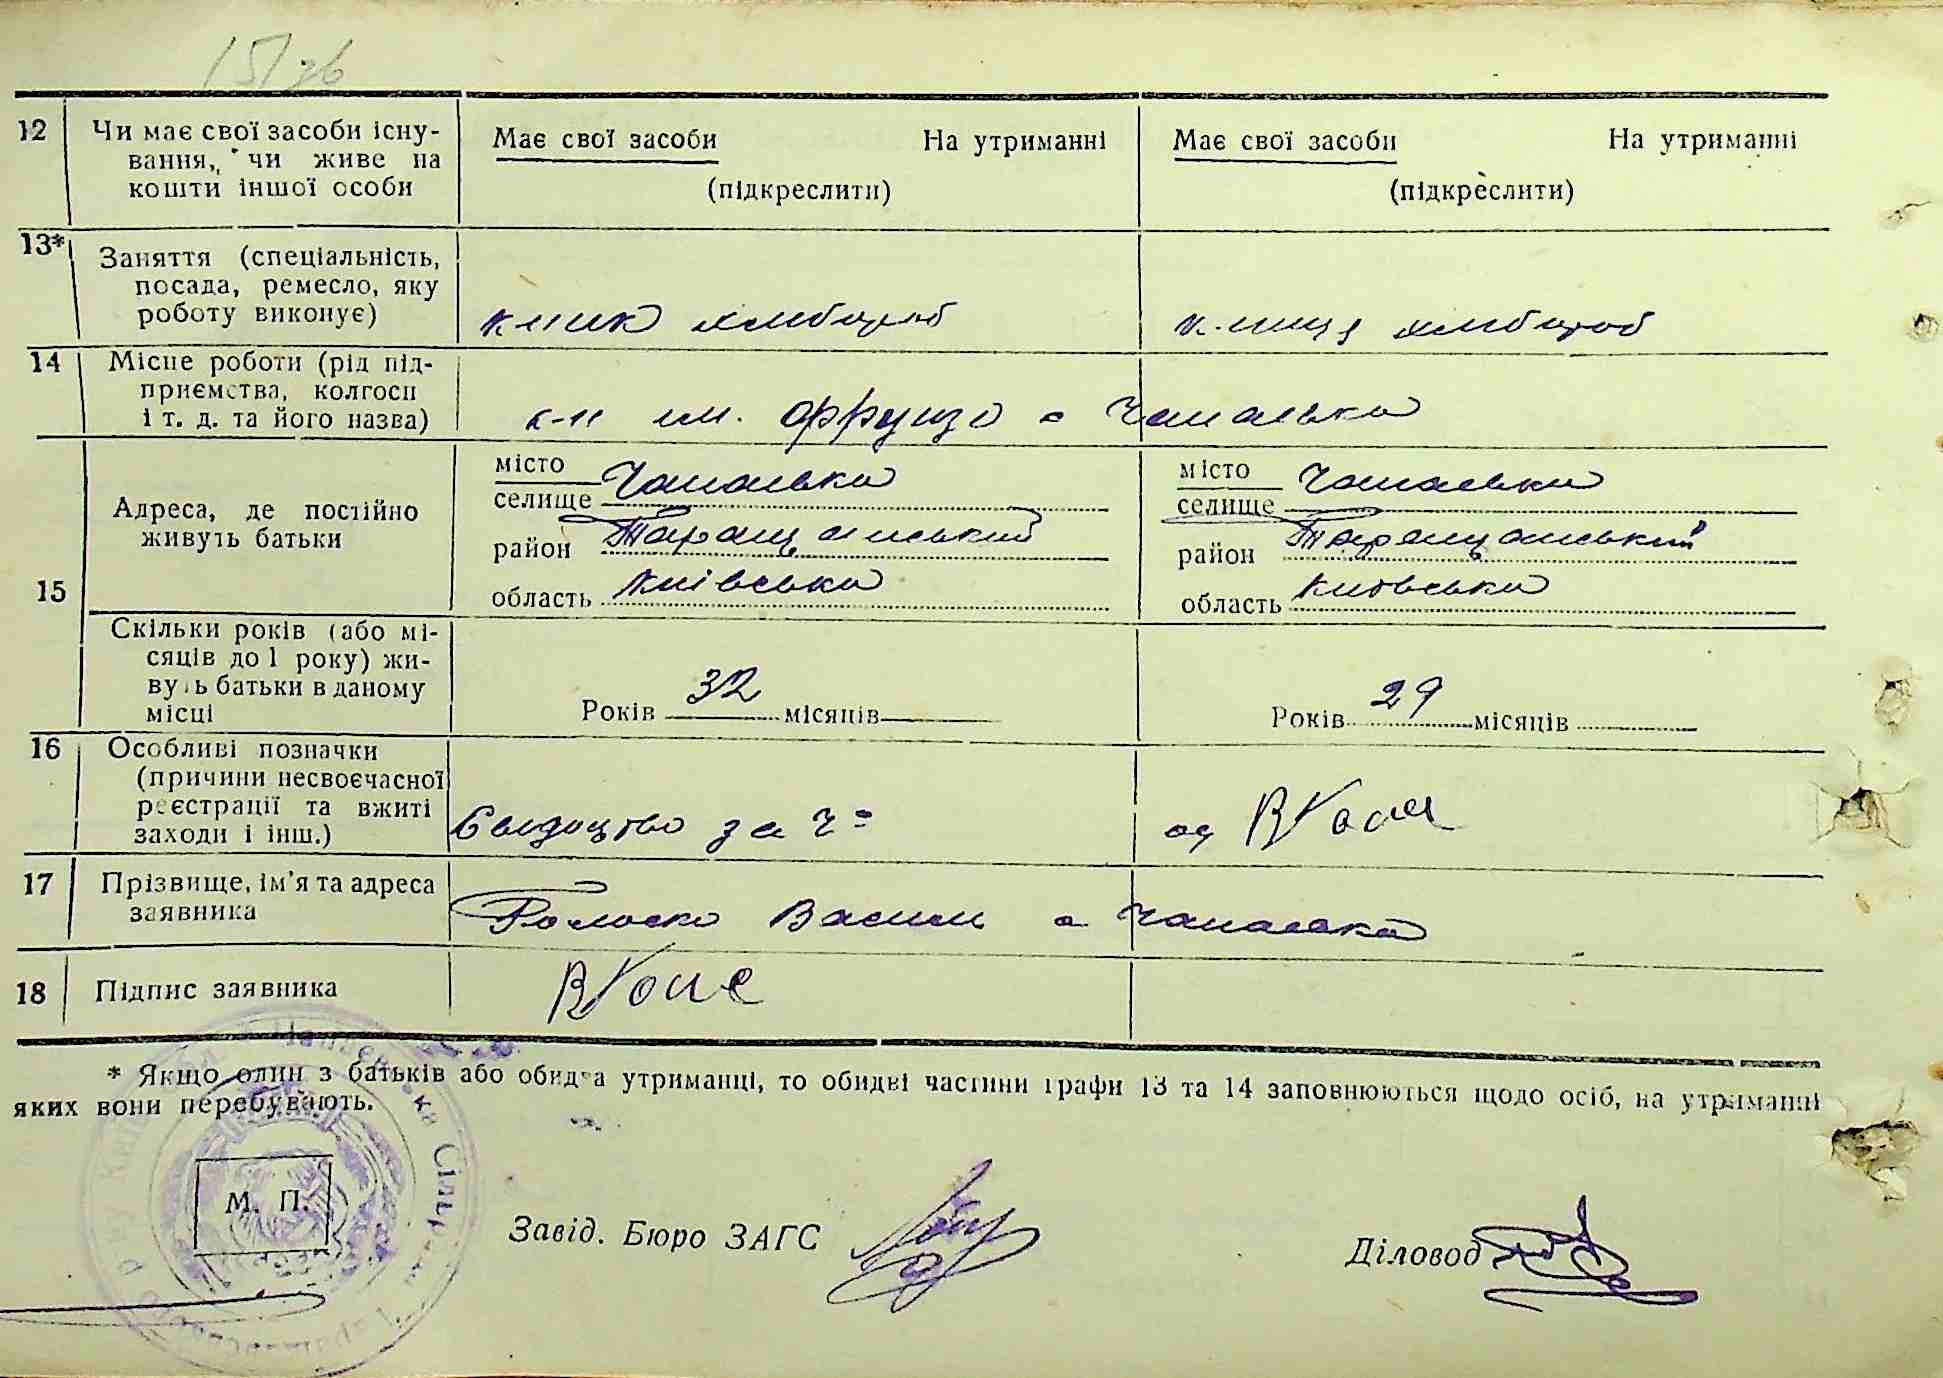 12 Чи має свої засоби існу-
вання, чи живе на
кошти іншої особи
Має свої засоби На утриманні
(підкреслити)
Має свої засоби На утриманні
(підкреслити)
13* Заняття (спеціальність,
посада, ремесло, яку
роботу виконує)
к-ник хлібороб
к-ниця хлібороб
14 Місце роботи (рід під-
приємства, колгосп
і т. д. та його назва)
к-п ім. Фрунзе с Чапаєвка
15 Адреса, де постійно
живуть батьки
місто
селище Чапаєвка
район Таращанський
область Київська
місто
селище Чапаєвка
район Таращанський
область Київська
Скільки років (або мі-
сяців до 1 року) жи-
вуть батьки в даному
місці
Років 32 місяців
Років 29 місяців
16 Особливі позначки
(причини несвоєчасної
реєстрації та вжиті
заходи і інш.)
Свидоцтво за Ч=
од
17 Прізвище, ім'я та адреса
заявника
Василь с Чапаєвка
18 Підпис заявника
* Якщо один з батьків або обидва утриманці, то обидві частини графи 13 та 14 заповнюються щодо осіб, на утриманні
яких вони перебувають.
М. П.
Завід. Бюро ЗАГС
Діловод